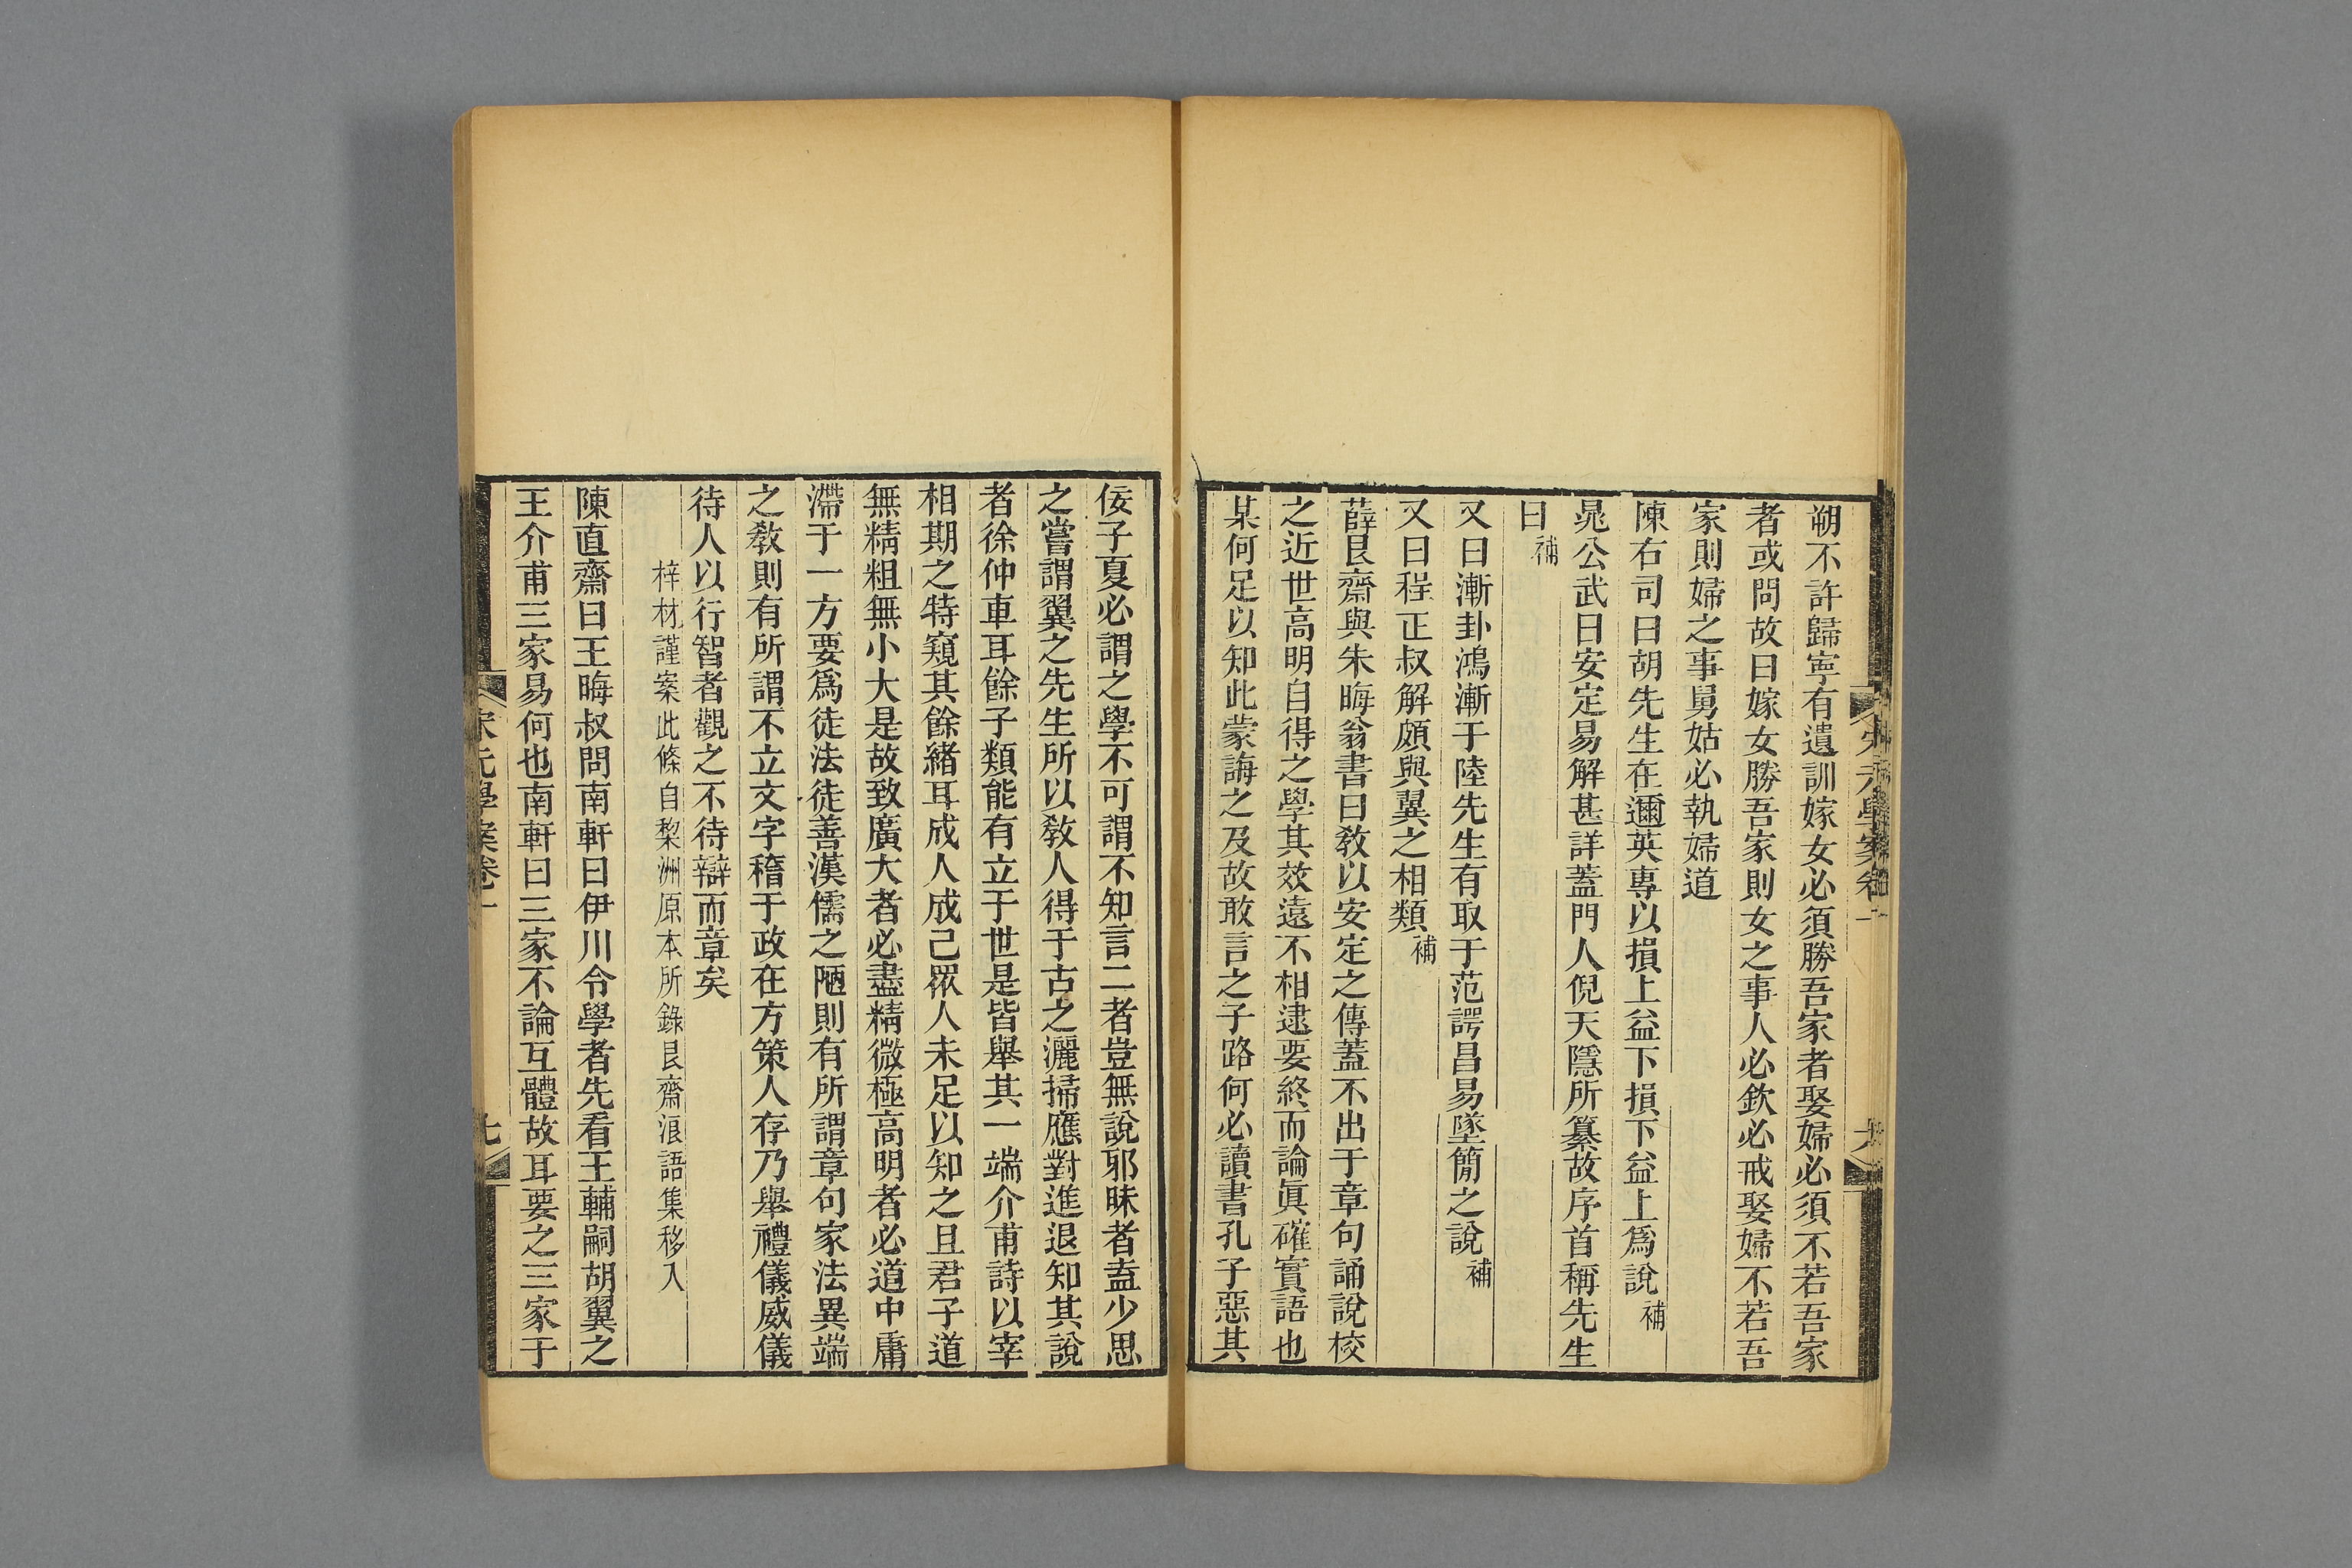 朔不許歸寧有遺訓嫁女必須勝吾家者娶婦必須不若吾家
者或問故曰嫁女勝吾家則女之事人必欽必戒娶婦不若吾
家則婦之事舅姑必執婦道
陳右司曰胡先生在邇英專以損上益下損下益上爲說補
晁公武曰安定易解甚詳蓋門人倪天隱所纂故序首稱先生
曰補
又曰漸卦鴻漸于陸先生有取于范諤昌易墜簡之說補
又曰程正叔解頗與翼之相類補
薛艮齋與朱晦翁書曰敎以安定之傳蓋不出于章句誦說校
之近世高明自得之學其效遠不相逮要終而論眞確實語也
某何足以知此蒙誨之及故敢言之子路何必讀書孔子惡其
宋元學案卷一
佞子夏必謂之學不可謂不知言二者豈無說耶昧者盍少思
之嘗謂翼之先生所以敎人得于古之灑掃應對進退知其說
者徐仲車耳餘子類能有立于世是皆舉其一端介甫詩以宰
相期之特窺其餘緒耳成人成己眾人未足以知之且君子道
無精粗無小大是故致廣大者必盡精微極高明者必道中庸
滯于一方要爲徒法徒善漢儒之陋則有所謂章句家法異端
之敎則有所謂不立文字稽于政在方策人存乃舉禮儀威儀
待人以行智者觀之不待辯而章矣
梓材謹案此條自棃洲原本所錄艮齋浪語集移入
陳直齋曰王晦叔問南軒曰伊川令學者先看王輔嗣胡翼之
王介甫三家易何也南軒曰三家不論互體故耳要之三家于
宋元學案卷一